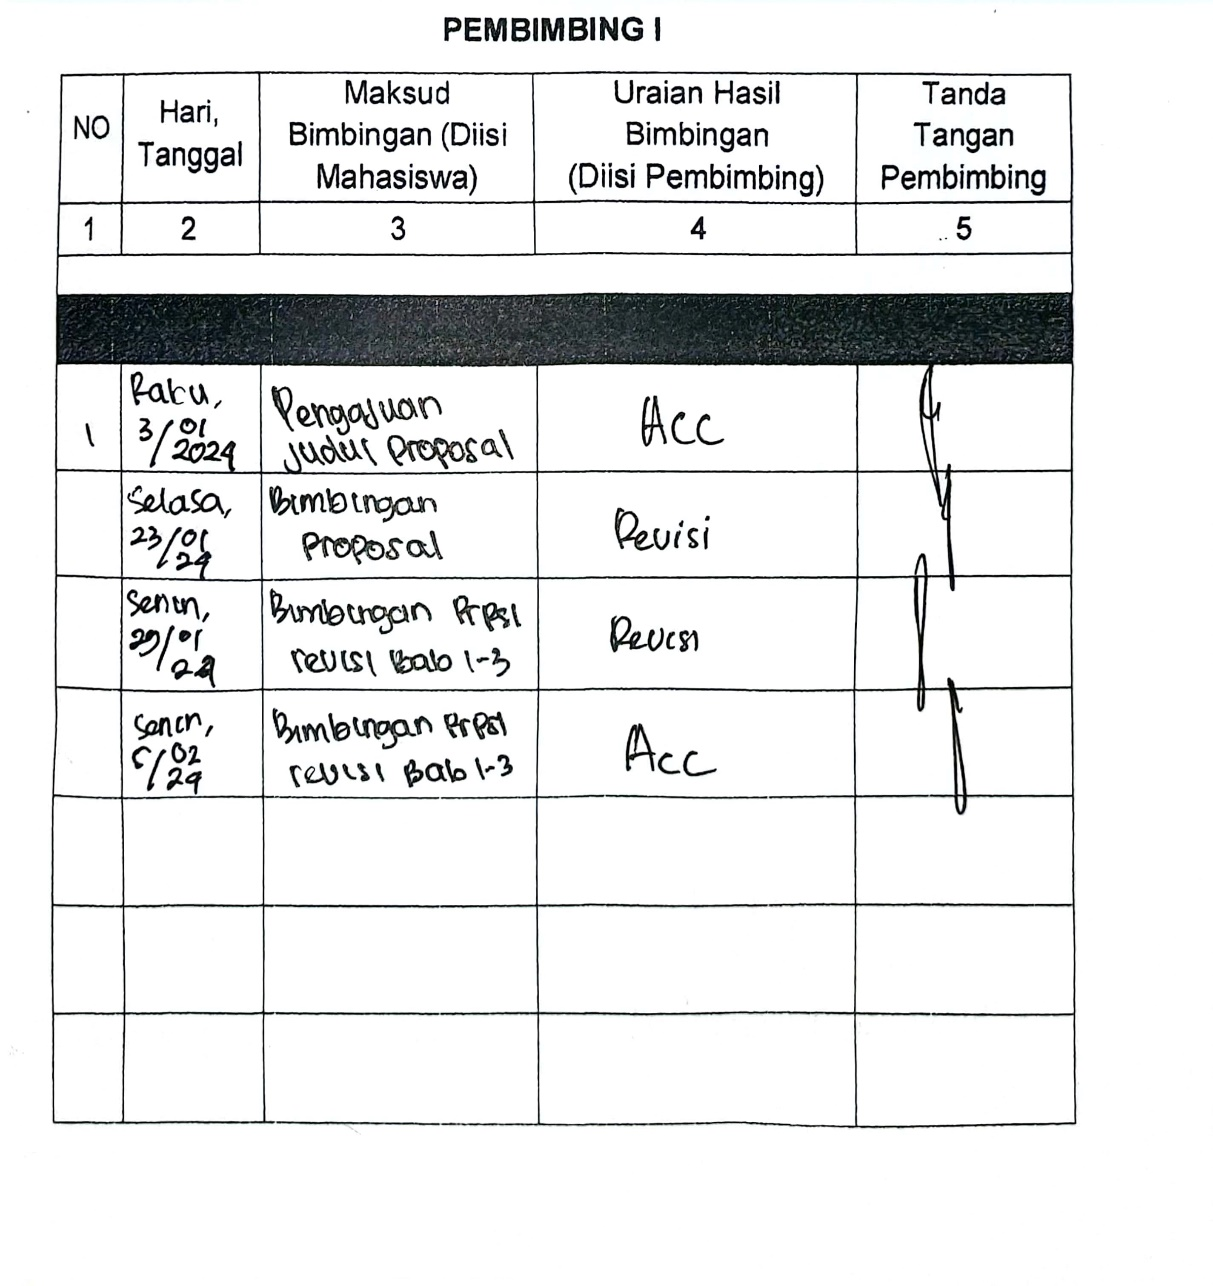 PEMBIMBING I
NO
Hari,
Tanggal
Maksud
Bimbingan (Diisi
Mahasiswa)
Uraian Hasil
Bimbingan
(Diisi Pembimbing)
Tanda
Tangan
Pembimbing
1
2
3
4
5
1
Rabu,
3/01
2024
Pengajuan
judul Proposal
Acc
Selasa,
23/01
24
Bimbingan
Proposal
Revisi
Senin,
29/01
24
Bimbingan Prpsl
revisi Bab 1-3
Revisi
Senin,
5/02
24
Bimbingan Prpsl
revisi Bab 1-3
Acc